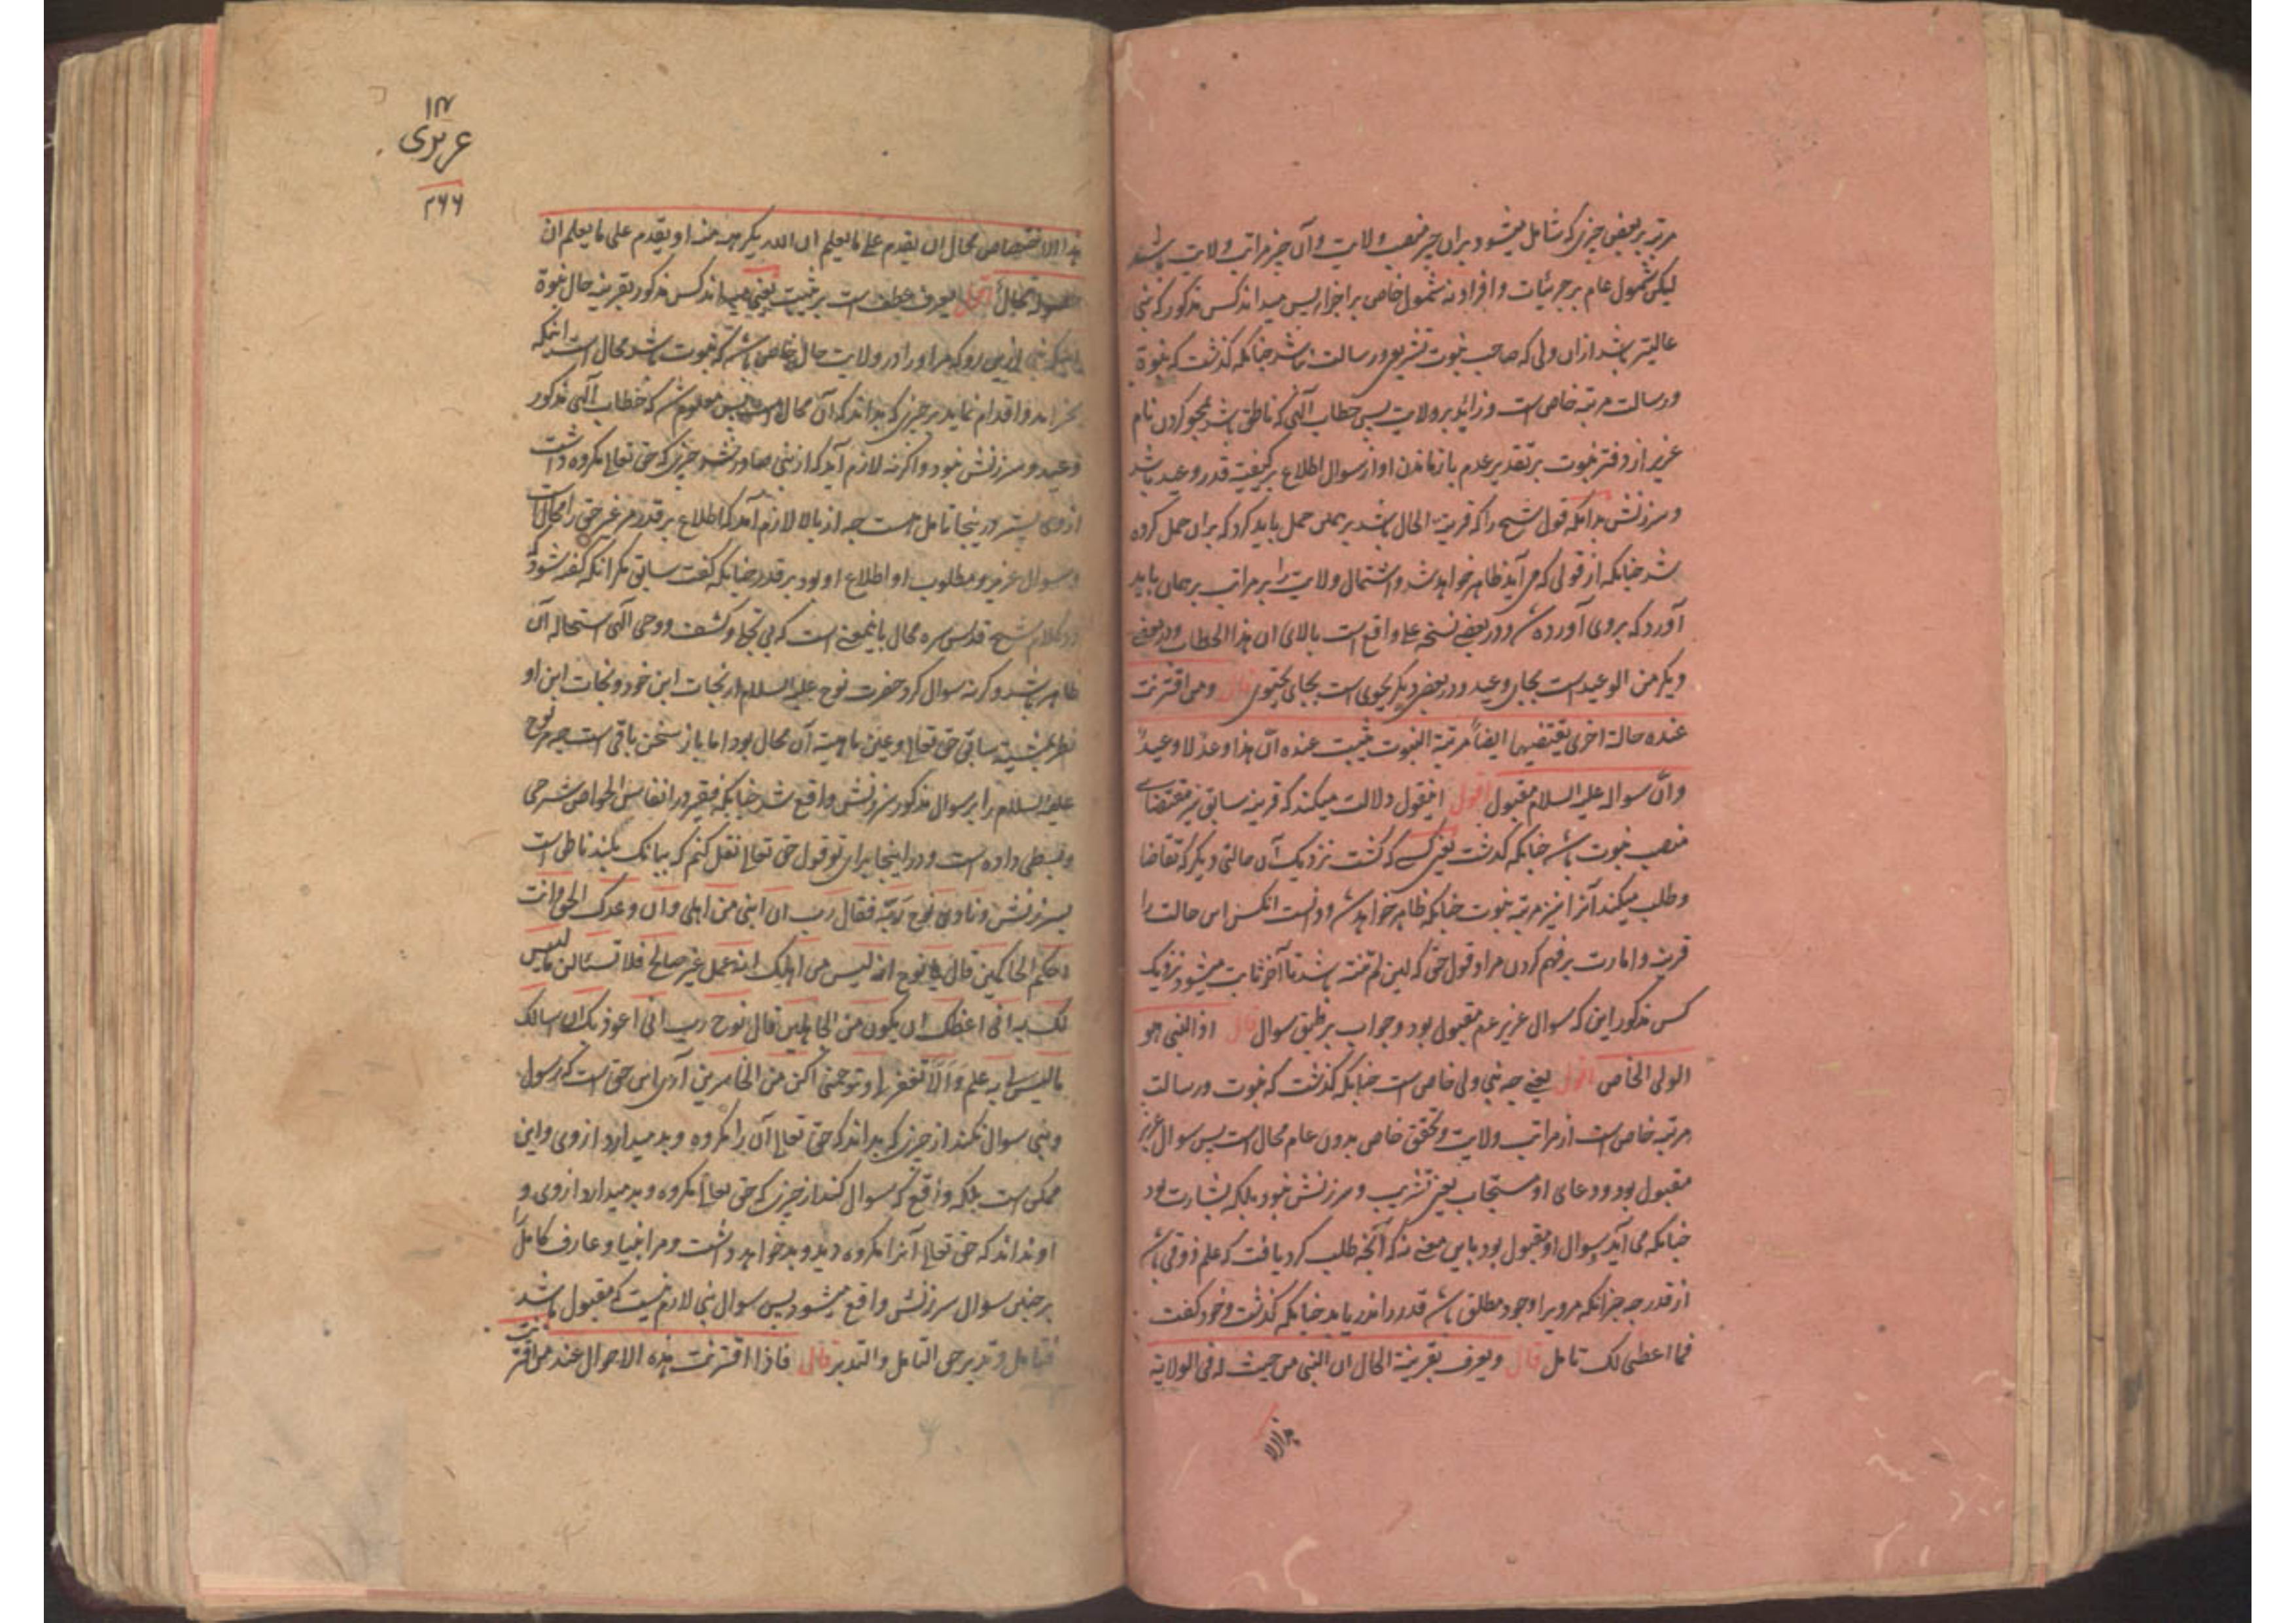 مرتبه بر بعضی چیزی که شامل میشود بران چیز منصب ولایت و آن چیز مراتب ولایت باشند
لیکن شمول عام بر جزئیات و افراد نه شمول خاص بر اجزا پس میداند کس مذکور که نبی
عالیتر باشد ازان ولی که صاحب نبوت تشریعی و رسالت نباشد چنانکه گذشت که نبوة
و رسالت مرتبه خاص است و زائد بر ولایت پس خطاب الهی که ناطق باشد بمحو کردن نام
عزیر از دفتر نبوت بر تقدیر عدم باز ماندن او از سوال اطلاع بر کیفیة قدر وعید باشد
و سرزنش بدانکه قول شیخ را که قرینة الحال باشد بر همان حمل باید کرد که بران حمل کرده
شد چنانکه از قولی که می آید ظاهر خواهد شد و اشتمال ولایت را بر مراتب بر همان باید
آورد که بروی آورده شد و در بعضے نسخه علی واقع است بالای ان هذا الخطاب و در بعضے
دیگر من الوعید است بجای وعید و در بعضی دیگر یحوی است بجای یحتوی قال ومن اقترنت
عنده حالة اخری یقتضیها ایضاً مرتبة النبوت یثبت عنده انّ هذا وعدٌ لا وعیدٌ
وانّ سواله علیه السلام مقبول اقول اینقول دلالت میکند که قرینه سابق نیز مقتضای
منصب نبوت باشد چنانکه گذشت یعنی کسے که گشت نزدیک آن حالتی دیگر که تقاضا
و طلب میکند آنرا نیز مرتبه نبوت چنانکه ظاهر خواهد شد و دانست آنکس اس حالت را
قرینه و امارت بر فهم کردن مراد قول حق که لین لم تنته باشد تا آخر ثابت میشود نزدیک
کس مذکور این که سوال عزیر عم مقبول بود و جواب بر طبق سوال قال اذ النبی هو
الولی الخاص اقول یعنے چه نبی ولی خاص است چنانکه گذشت که نبوت و رسالت
مرتبه خاص است از مراتب ولایت و تحقق خاص بدون عام محال است پس سوال عزیر
مقبول بود و دعای او مستجاب بغیر تثریب و سرزنش نبود بلکه بشارت بود
چنانکه می آید سوال او مقبول بود باین معنے نه که آنچه طلب کرد یافت که علم ذوقی باشد
از قدر چه جز آنکه مرو را وجود مطلق باشد قدر را نداند یابد چنانکه گذشت و خود گفت
فما اعطی لک تامل قال ویعرف بقرینة الحال ان النبی من حیث له فی الولایة
هذا الا
۱۴
عزیری
۲۶۶
هذا الاختصاص محال ان یقدم علی ما یعلم ان الله یکرهه منه او یقدم علی ما یعلم ان
حصوله محال اقول یعرف عطف است بر یثبت یعنی میداند کس مذکور بقرینه حال نبوة
اینکه نبی ازین رو که مر او را در ولایت حال خاص باشد که نبوت باشد محال است اینکه
بخراید و اقدام نماید بر چیزی که بداند که آن محال است پس معلوم شد که خطاب الهی مذکور
وعید و سرزنش نبود و اگر نه لازم آید که از نبی صادر شود چیزی که حق تعالی مکروه داشت
از وی بستر در ینجا تامل است چه از بالا لازم آمد که اطلاع بر قدر مر غیر حق را محال است
و سوال عزیر و مطلوب او اطلاع او بود بر قدر چنانکه گفت سابق مگر آنکه گفته شود که
در کلام شیخ قدس سره محال باینمعنے است که بی تجلی و کشف و وحی الهی استحاله آن
ظاهر باشد و گرنه سوال کرد حضرت نوح علیه السلام از نجات ابن خود و نجات ابن او
نظر بمشیة سابق حق تعالی و عین ماهیة آن محال بود اما باز سخن باقی است چه مر نوح
علیه السلام را بر سوال مذکور سرزنش واقع شد چنانکه فقیر در انفاس الخواص شرحی
و بسطی داده است و در اینجا برای تو قول حق تعالی نقل کنم که ببانک بلند ناطق است
بسرزنش ونادی نوح ربّه فقال رب ان ابنی من اهلی وان وعدک الحق وانت
احکم الحاکمین قال یا نوح انه لیس من اهلک انه عمل غیر صالح فلا تسئلن ما لیس
لک به انی اعظک ان یکون من الجاهلین قال نوح رب انی اعوذ بک ان اسالک
ما لیس لی به علم وَالّا تغفر لی و ترحمنی اکن من الخاسرین آری اس حق است که رسول
و نبی سوال نکند از چیزی که بداند که حق تعالی آن را مکروه و بد میدارد از وی و این
ممکن است بلکه واقع که سوال کند از چیزی که حق تعالی مکروه و بد میدارد از وی و
او نداند که حق تعالی آنرا مکروه دید و بد خواهد داشت و مر انبیا و عارف کامل را
بر چنین سوال سرزنش واقع میشود پس سوال نبی لازم نیست که مقبول باشد
فتامل و تدبر حق التامل والتدبر قال فاذا اقترنت هذه الاحوال عند من اقترنت